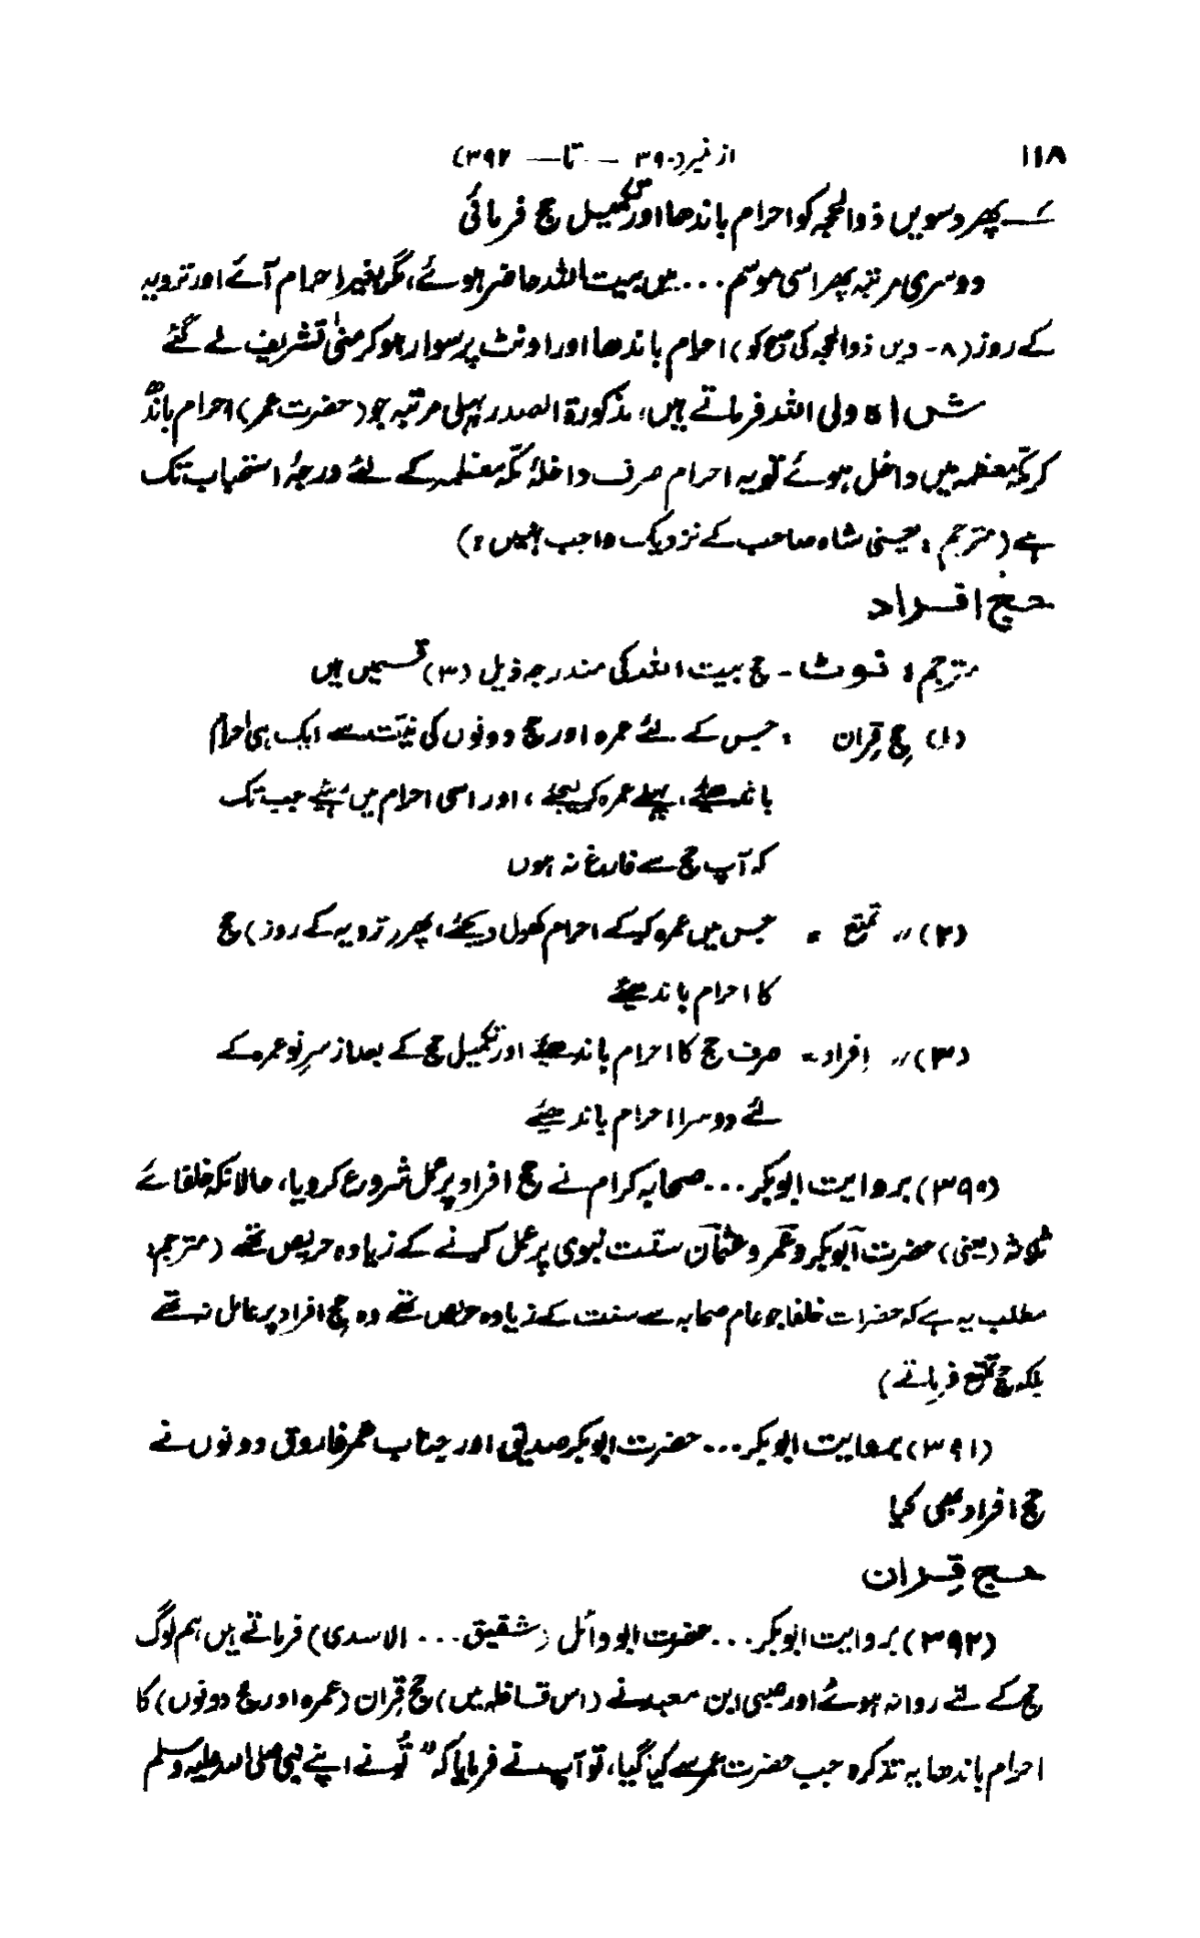 ۱۱۸ از نمبر(۳۹۰ — تا — ۳۹۲)
کے پھر دسویں ذوالحجہ کو احرام باندھا اور تکمیل حج فرمائی
دوسری مرتبہ پھر اسی موسم ... میں بیت اللہ حاضر ہوئے، مگر بغیر احرام آئے اور ترویہ
کے روز (۸- ویں ذوالحجہ کی صبح کو) احرام باندھا اور اونٹ پر سوار ہو کر منیٰ تشریف لے گئے
شاہ ولی اللہ فرماتے ہیں، مذکورۃ الصدر پہلی مرتبہ جو (حضرت عمر) احرام باندھ
کر مکہ معظمہ میں داخل ہوئے تو یہ احرام صرف داخلۂ مکہ معظمہ کے لئے درجۂ استحباب تک
ہے (مترجم : یعنی شاہ صاحب کے نزدیک واجب نہیں :)
حج افراد
مترجم : نوٹ - حج بیت اللہ کی مندرجہ ذیل (۳) قسمیں ہیں
(۱) حج قِران : جس کے لئے عمرہ اور حج دونوں کی نیّت سے ایک ہی احرام
باندھیئے، پہلے عمرہ کر لیجئے ، اور اسی احرام میں رہیئے جب تک
کہ آپ حج سے فارغ نہ ہوں
(۲) 〃 تمتع = جس میں عمرہ کر کے احرام کھول دیجئے، پھر (ترویہ کے روز) حج
کا احرام باندھیئے
(۳) 〃 افراد = صرف حج کا احرام باندھیئے اور تکمیل حج کے بعد از سرِ نو عمرہ کے
لئے دوسرا احرام باندھیئے
(۳۹۰) بروایت ابوبکر ... صحابہ کرام نے حج افراد پر عمل شروع کر دیا، حالانکہ خلفائے
ثلاثہ (یعنی) حضرت ابوبکر و عمر و عثمان سنّت نبوی پر عمل کرنے کے زیادہ حریص تھے (مترجم:
مطلب یہ ہے کہ حضرات خلفا جو عام صحابہ سے سنت کے زیادہ حریص تھے وہ حج افراد پر عامل نہ تھے
بلکہ حج تمتع فرماتے)
(۳۹۱) بروایت ابوبکر ... حضرت ابوبکر صدیق اور جناب عمر فاروق دونوں نے
حج افراد بھی کیا
حج قِران
(۳۹۲) بروایت ابوبکر ... حضرت ابو وائل (شقیق ... الاسدی) فرماتے ہیں ہم لوگ
حج کے لئے روانہ ہوئے اور صبی ابن معبد نے (اس قافلہ میں) حج قِران (عمرہ اور حج دونوں) کا
احرام باندھا یہ تذکرہ جب حضرت عمر سے کیا گیا، تو آپ نے فرمایا کہ “ تُو نے اپنے نبی صلی اللہ علیہ وسلم